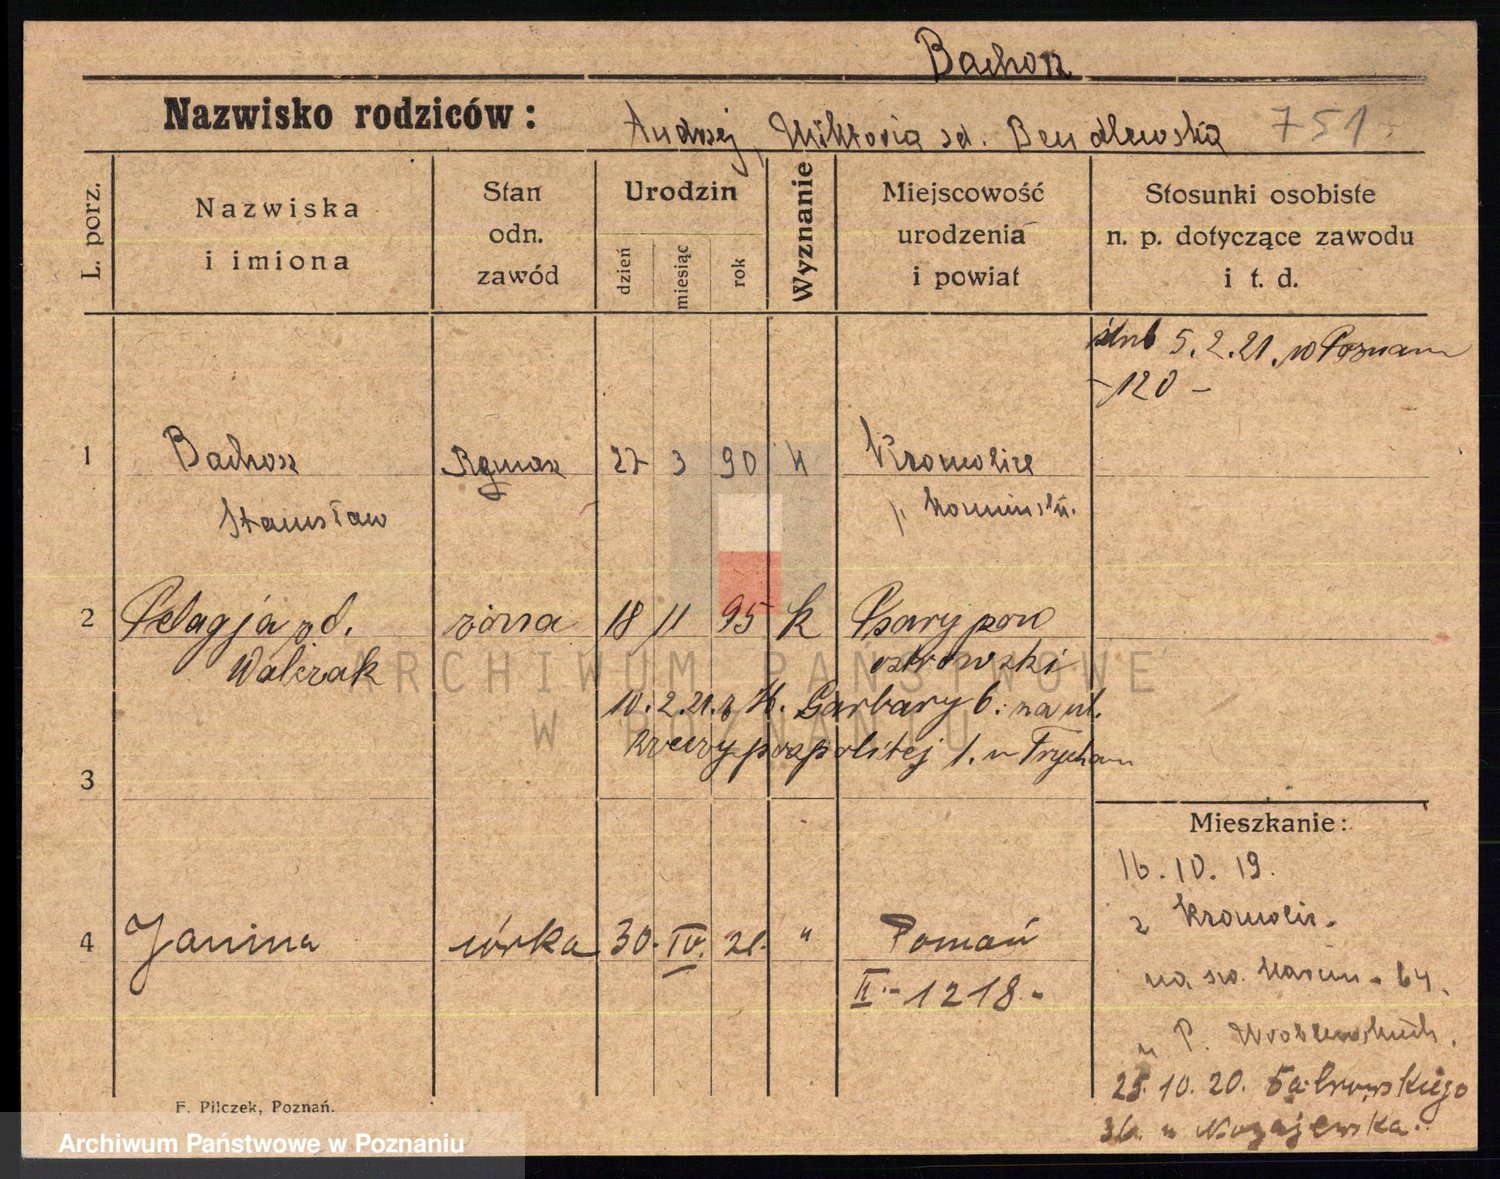 Bachorz
Nazwisko rodziców: Andrzej, Wiktoria zd. Bendlewska 751
L. porz.
Nazwiska i imiona
Stan odn. zawód
Urodzin
dzień
miesiąc
rok
Wyznanie
Miejscowość urodzenia i powiat
Stosunki osobiste n. p. dotyczące zawodu i t. d.
ślub 5.2.21. w Poznaniu
-120-
1 Bachorz 27 3 90 k Kromolice
Stanisław p. Kozmiński
2 Pelagja zd. żona 18 11 95 k Psary pow
Walczak ostrowski
10.2.21. z Garbary 6. na ul.
Rzeczypospolitej 1. u
3
Mieszkanie:
16.10.19.
z Kromolic.
na św. Marcin 64.
u P. Wroblewskich.
4 Janina córka 30. IV. 21. " Poznań
II.-1218.-
25.10.20. Dąbrowskiego
u
F. Pilczek, Poznań.
ARCHIWUM PAŃSTWOWE
W POZNANIU
Archiwum Państwowe w Poznaniu